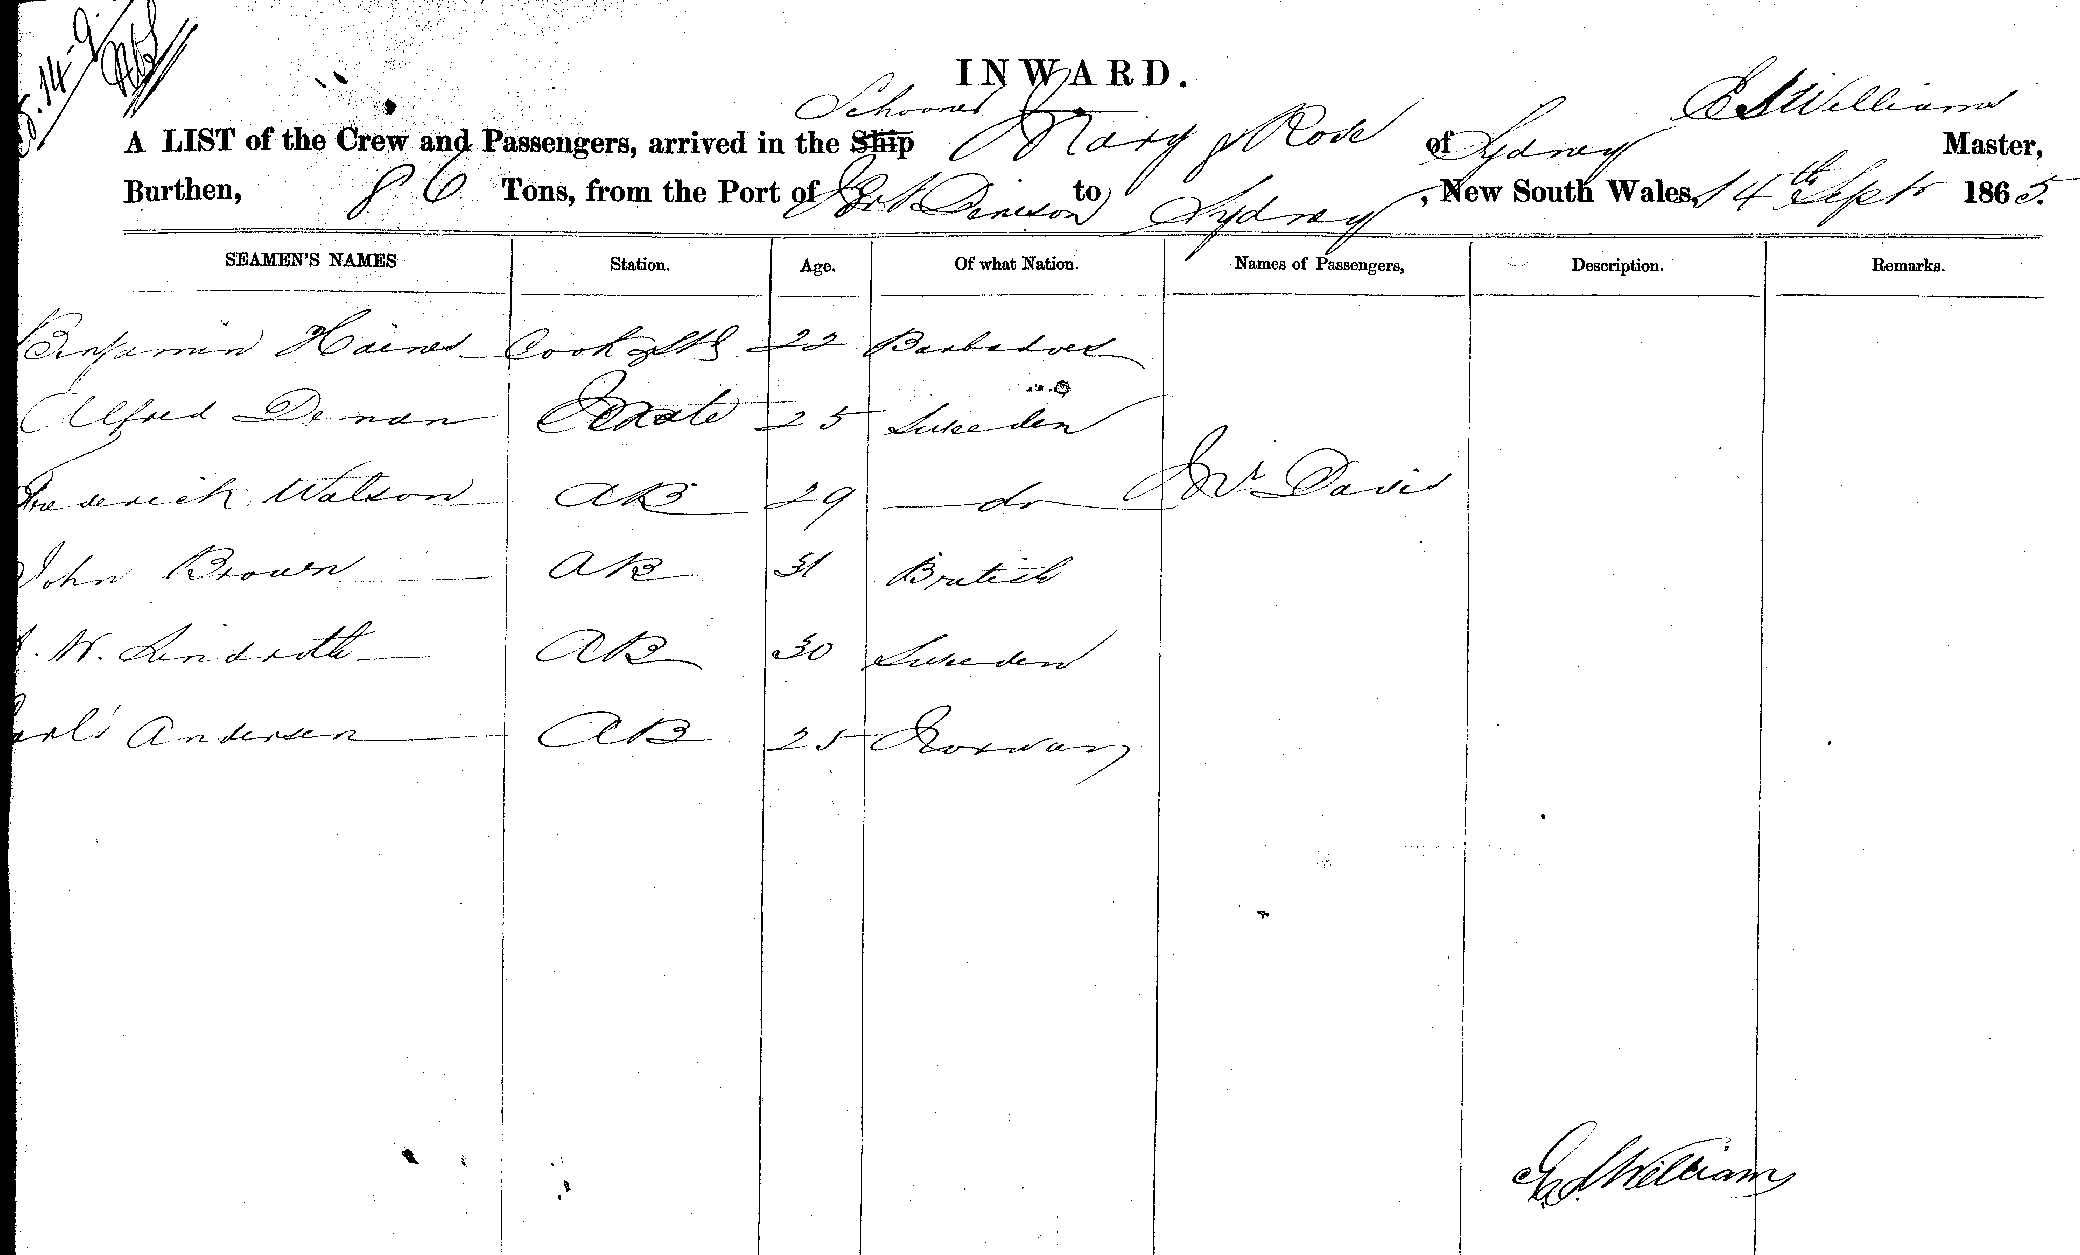 14-9
INWARD.
Schooner E S Williams
A LIST of the Crew and Passengers, arrived in the Ship Mary & Rose of Sydney Master,
Burthen, 86 Tons, from the Port of Port Denison to Sydney, New South Wales, 14th Sept 1865.
SEAMEN'S NAMES Station. Age. Of what Nation. Names of Passengers, Description. Remarks.
Benjamin Haines Cook & Std 22 Barbadoes
Alfred Deman Mate 25 Sweeden
Frederick Watson AB 29 do Mr Davis
John Brown AB 31 British
W. Lindroth AB 30 Sweden
Carl Andersen AB 25 Norway
E S Williams